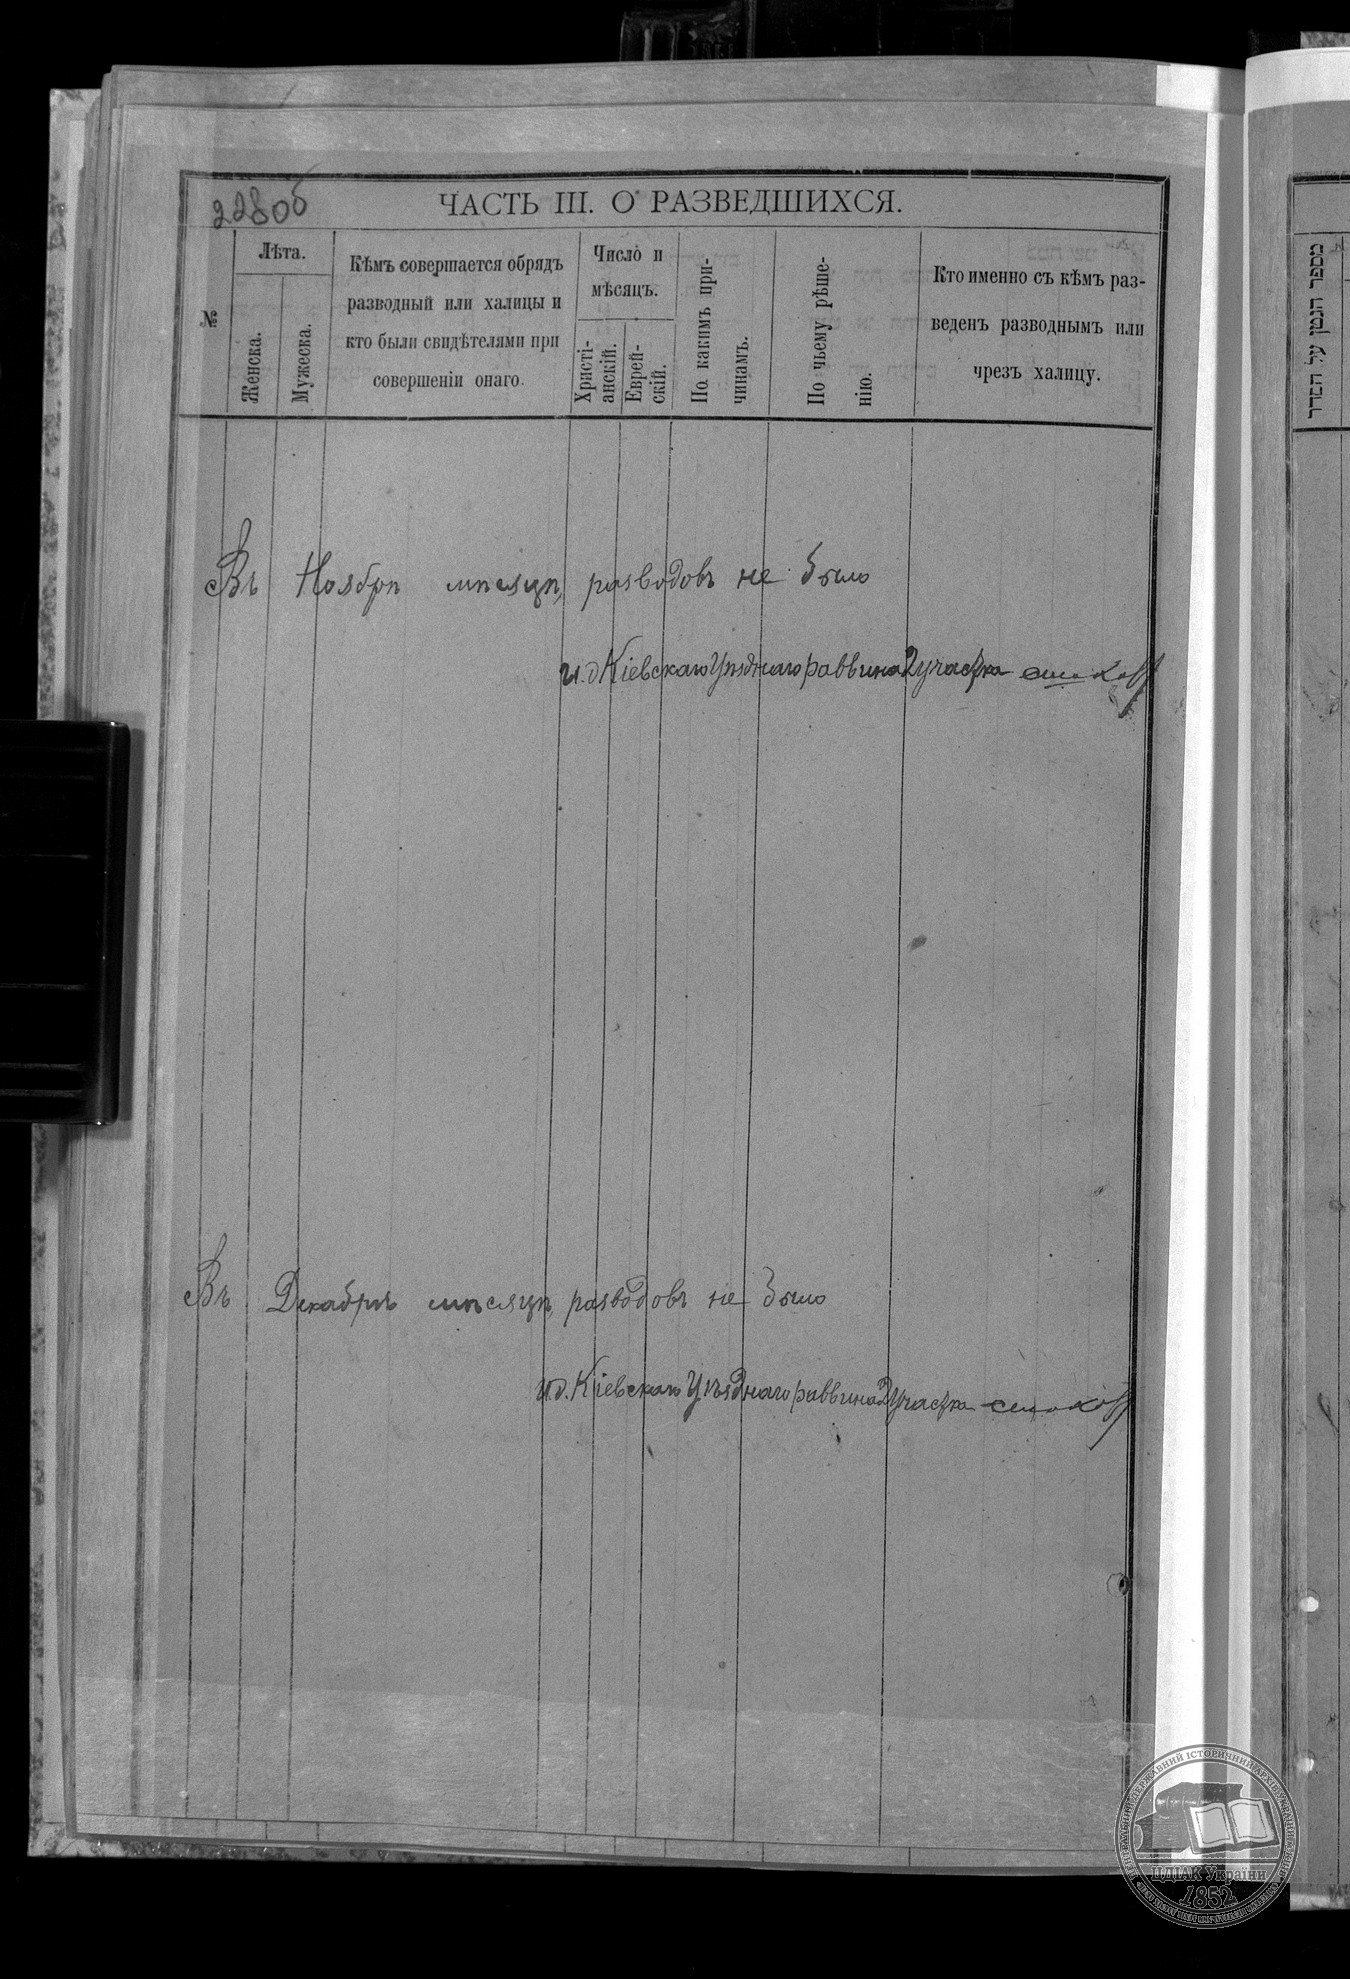 228об
ЧАСТЬ III. О РАЗВЕДШИХСЯ.
№
Лѣта.
Женска.
Мужеска.
Кѣмъ совершается обрядъ
разводный или халицы и
кто были свидѣтелями при
совершеніи онаго.
Число и
мѣсяцъ.
Христі-
анскій.
Еврей-
скій.
По какимъ при-
чинамъ.
По чьему рѣше-
нію.
Кто именно съ кѣмъ раз-
веденъ разводнымъ или
чрезъ халицу.
Въ Ноябрѣ мѣсяцѣ разводовъ не было
И.д Кіевскаго Уѣзднаго раввина 2 участка
Въ Декабрѣ мѣсяцѣ разводовъ не было
И.д. Кіевскаго Уѣзднаго раввина 2 участка
מספר הנמן על הסדר
ЦДІАК України
1852